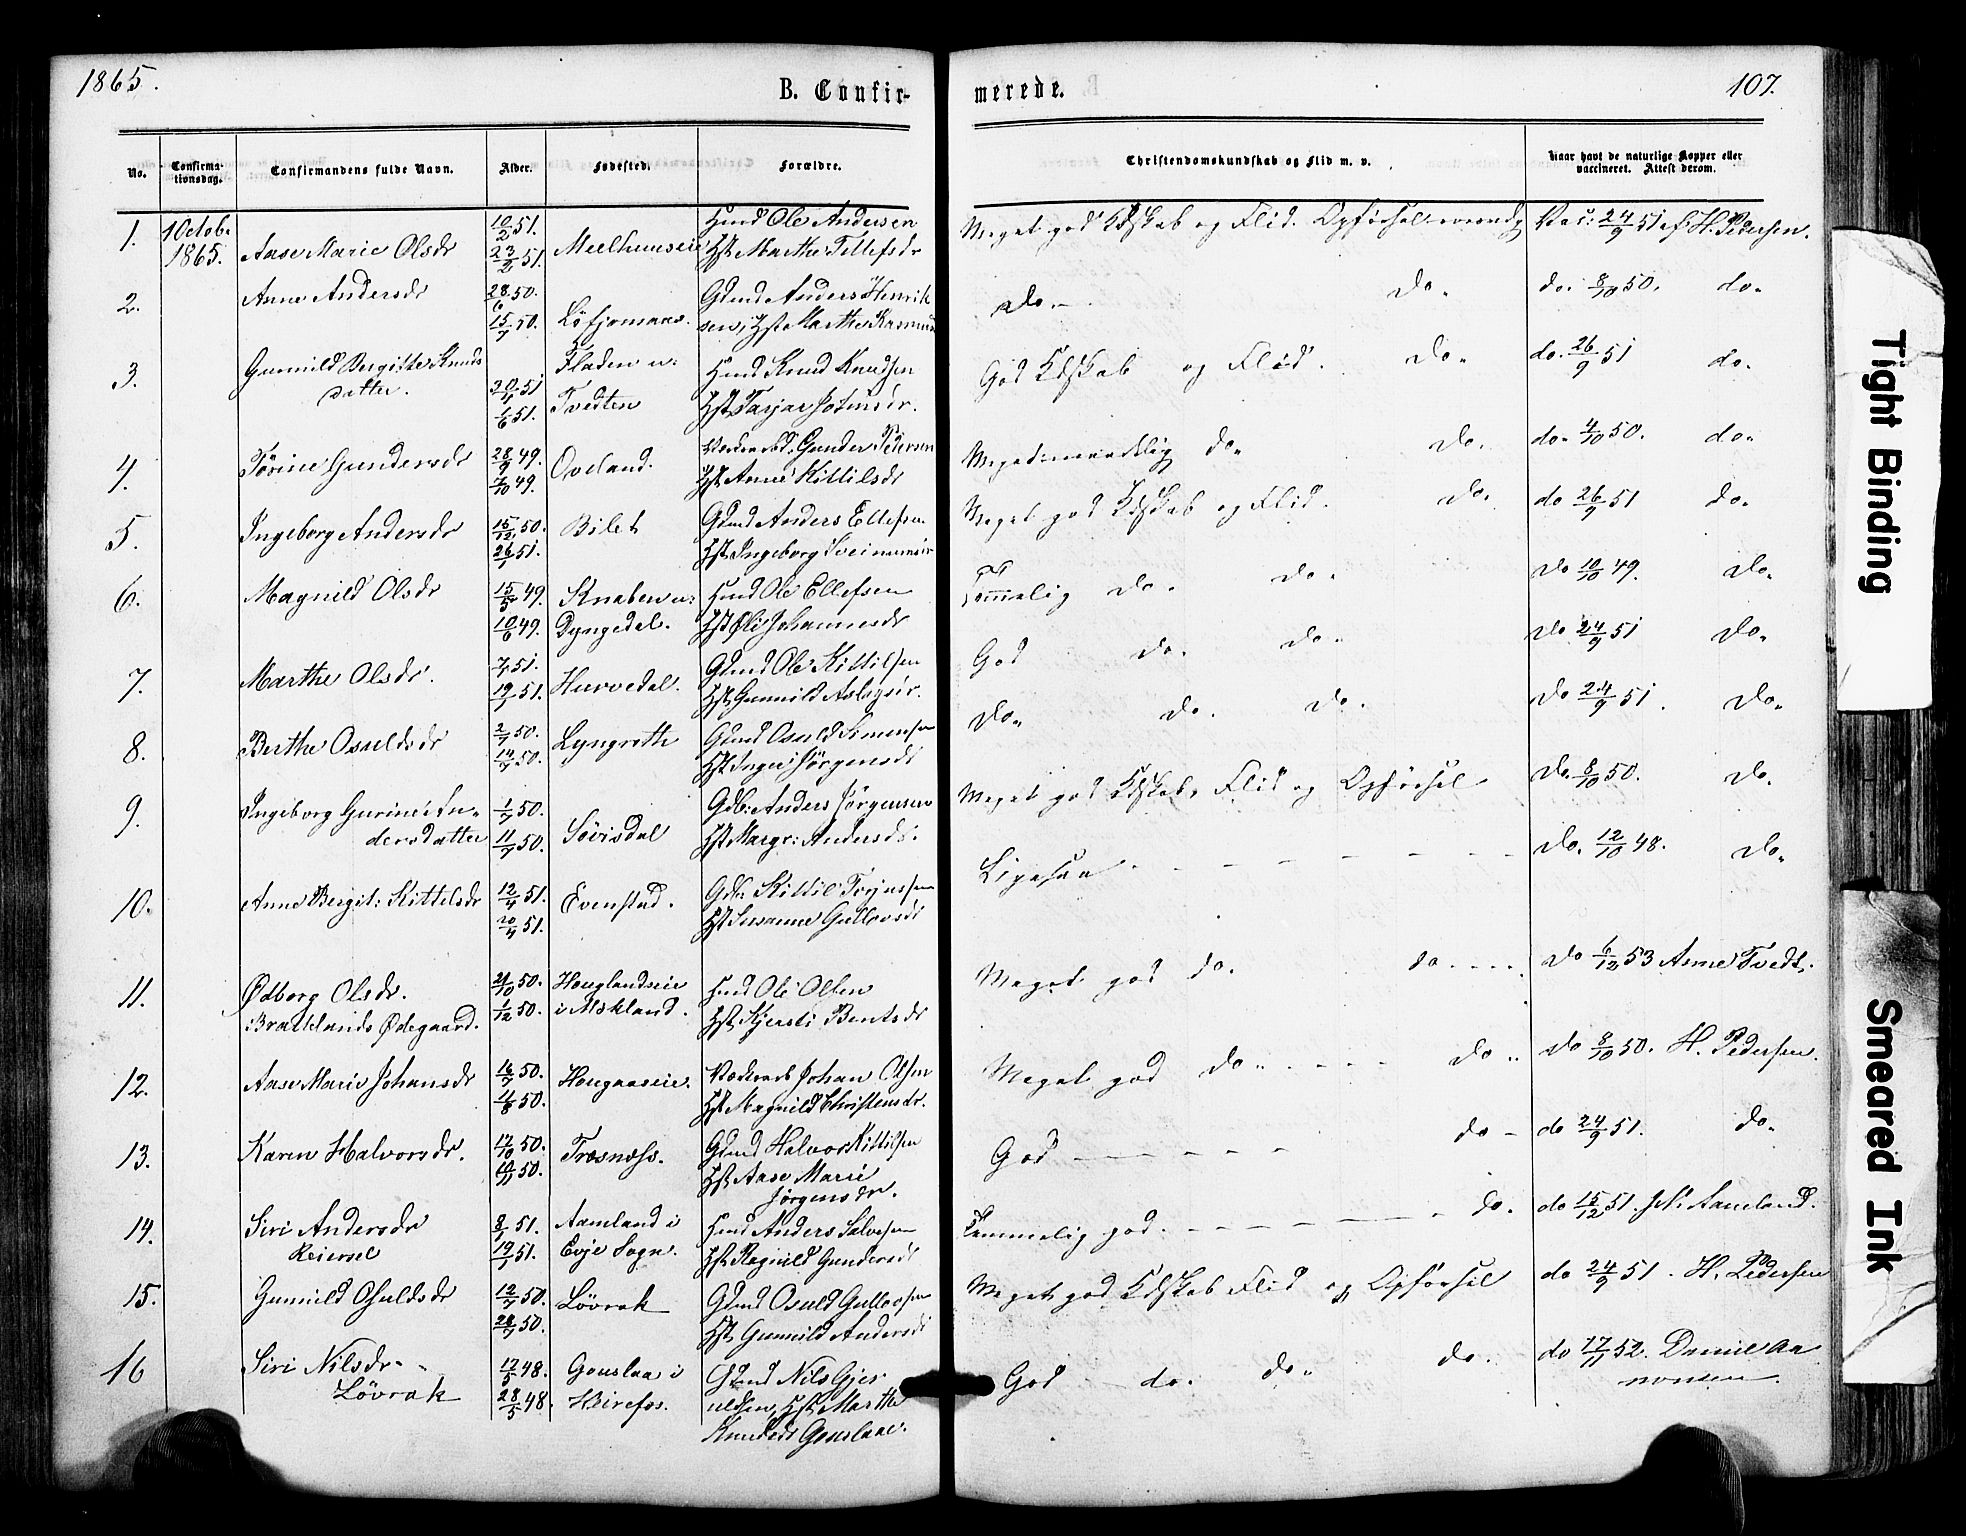 1865.
B. Confir-
merede.
107.
No.
Confirma-
tionsdag.
Confirmandens fulde Navn.
Alder.
Fødested.
Forældre.
Christendomskundskab og Flid m. v.
Naar havt de naturlige Kopper eller
vaccineret. Attest derom.
1. 1 Octob. 1865. Aase Marie Olsdr 10/2 51. 23/2 51. Hmd Ole Andersen Hst Marthe Tellefsdr Meget god Kdskab og Flid. Opførsel Vac: 24/9 51 af H. Pedersen.
2. Anne Andersdr 28/6 50. 15/7 50. Gdmd Anders Henrik
sen, Hst Marthe do. do. do. 8/10 50. do.
3. Gunnild Bergitte Knuds
datter. 20/4 51 1/6 51. Fladen u. Tvedten Hmd Knud Knudsen Hst Tarjer God Kdskab og Flid. do. do. 26/9 51 do.
4. Tørine Gundersdr 28/9 49. 7/10 49. Oveland. Gunder Pedersen Hst Anne Kittilsdr do. do. do. 4/10 50. do.
5. Ingeborg Andersdr 15/12 50. 26/1 51. Bilet Gdmd Anders Ellefsen Hst Ingeborg Meget god Kdskab og Flid. do. do 26/9 51 do.
6. Magnild Olsdr 15/5 49. 10/6 49. Knaben u: Dyngedal. Hmd Ole Ellefsen Hst Johannesdr Temmelig do. do. do 10/10 49. do.
7. Marthe Olsdr. 7/1 51. 19/1 51. Hurvedal. Gdmd Ole Kittilsen Hst Gunnild God do. do. do 24/9 51 do.
8. Berthe Osuldsdr 2/7 50. 14/7 50. Lyngroth Gdmd Osuld Simonsen Hst Inger Jørgensdr do. do. do. do 24/9 51. do.
9. Ingeborg Gurine An-
dersdatter 1/7 50. 11/7 50. Søvisdal Gdb: Anders Jørgensen Hst Margr: Andersdr. Meget god Kdskab, Flid og Opførsel do. 8/10 50. do.
10. Anne Bergit: Kittelsdr 12/4 51. 20/4 51. Evenstad. Gdb. Kittil Terjusen Hst Susanne Gullovsdr Ligesaa - - - - - do. 12/10 48. do.
11. Ødborg Olsdr.
Bratlelands Ødegaard. 21/10 50. 1/12 50. Houglandseie
i Moland. Hmd Ole Olsen Hst Kjersti Bentsdr Meget god do. do. - - - do 6/12 53 Asme Tvedt.
12. Aase Marie Johansdr 16/7 50. 4/8 50. Hougaaseie. Johan Olsen Hst Magnild Christensdr. Meget god do. - - - do. do 8/10 50. H. Pedersen.
13. Karen Halvorsdr. 12/10 50. 10/11 50. Træsnæss. Gdmd Halvor Kittilsen Hst Aase Marie
Jørgensdr. God - - - - - - do - do 24/9 51. do.
14. Siri Andersdr
Reiersel 8/1 51. 19/1 51. Aamland i
Evje Sogn. Hmd Anders Salvesen Hst Regnild Gundersdr Temmelig god. - - - - - do. do 15/12 51. Aamland.
15. Gunnild Osuldsdr 12/7 50. 28/7 50. Løvrak Gdmd Osuld Gullovsen Hst Gunnild Andersdr Meget god Kdskab Flid og Opførsel do 24/9 51. H. Pedersen
16 Siri Nilsdr -
Løvrak 12/5 48. 28/5 48. Gouslaa i
Heirefos. Gdmd Nils Gjer
uldsen, Hst Marthe
Knudsdr Gouslaae. God - do. do. do. do 17/11 52. Daniel Aa
nonsen.
Tight Binding
Smeared Ink